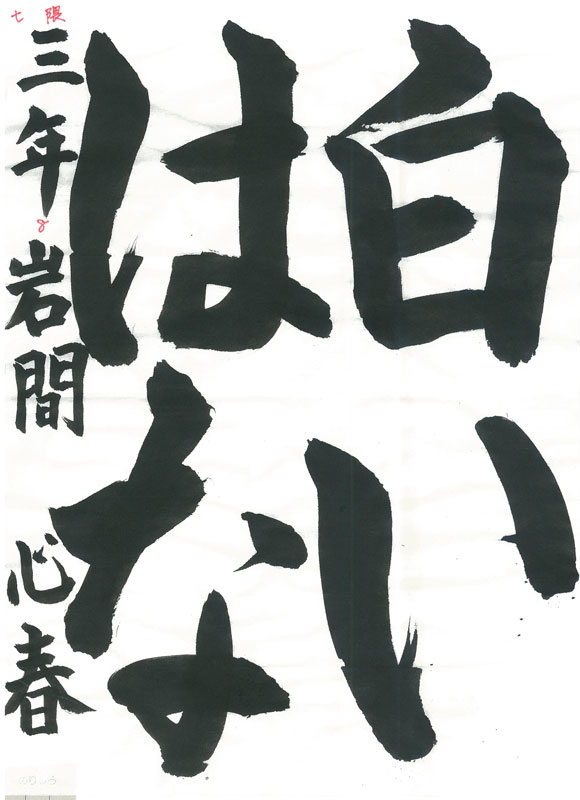 白い
はな
七隈
三年岩間心春